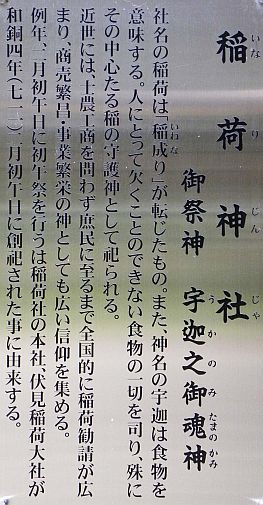 稲荷神社
いなりじんじゃ
御祭神 宇迦之御魂神
うかのみたまのかみ
社名の稲荷は「稲成り」が転じたもの。また、神名の宇迦は食物を
いねな
意味する。人にとって欠くことのできない食物の一切を司り、殊に
その中心たる稲の守護神として祀られる。
近世には、士農工商を問わず庶民に至るまで全国的に稲荷勧請が広
まり、商売繁昌・事業繁栄の神としても広い信仰を集める。
例年、二月初午日に初午祭を行うは稲荷社の本社、伏見稲荷大社が
和銅四年(七一一)二月初午日に創祀された事に由来する。